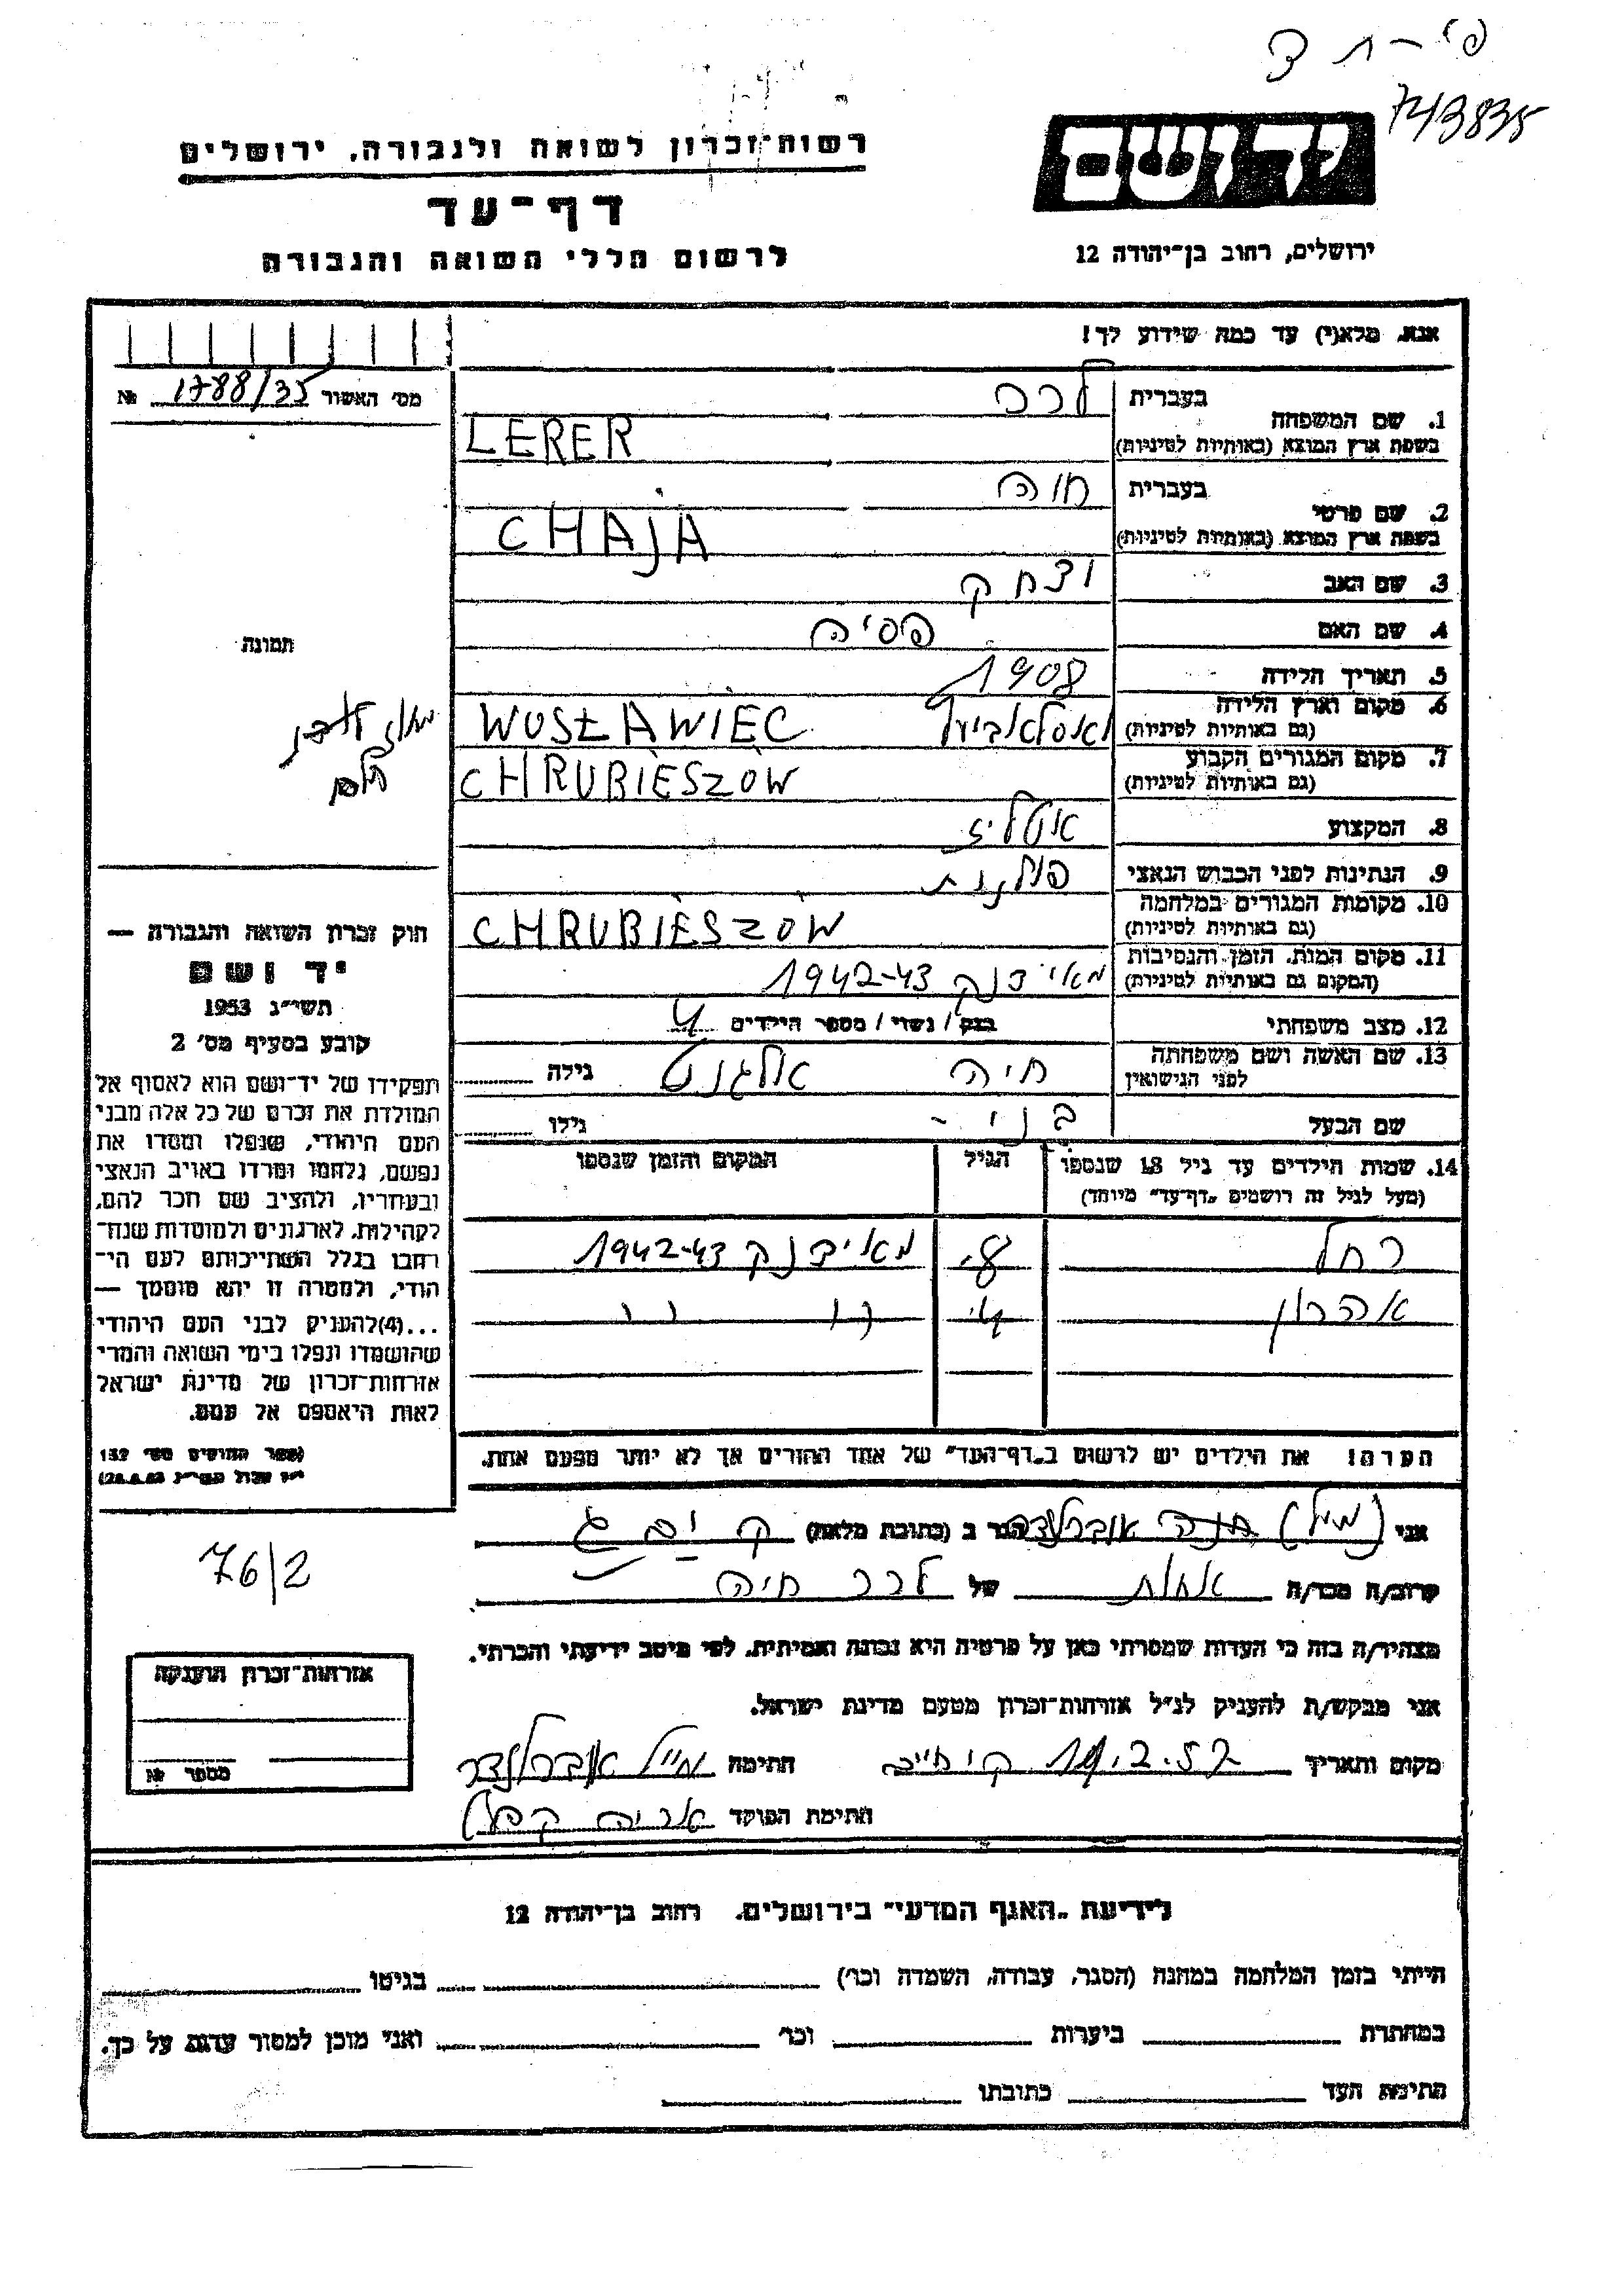 743835
רשות-זכרון לשואה ולגבורה, ירושלים
דף-עד
לרשום חללי השואה והגבורה
יד ושם
ירושלים, רחוב בן-יהודה 12
אנא, מלא(י) עד כמה שידוע לך!
מס' האשור 1788/35 №
1. שם המשפחה
בעברית לרר
בשפת ארץ המוצא (באותיות לטיניות) LERER
2. שם פרטי
בעברית חיה
בשפת ארץ המוצא (באותיות לטיניות) CHAJA
3. שם האב יצחק
4. שם האם פסיה
5. תאריך הלידה 1908
6. מקום וארץ הלידה
(גם באותיות לטיניות) WOSŁAWIEC
7. מקום המגורים הקבוע
(גם באותיות לטיניות) CHRUBIESZÓW
8. המקצוע אטליז
9. הנתינות לפני הכבוש הנאצי פולנית
10. מקומות המגורים במלחמה
(גם באותיות לטיניות) CHRUBIESZÓW
11. מקום המות, הזמן והנסיבות
(המקום גם באותיות לטיניות) מאידנק 1942-43
12. מצב משפחתי רווק / נשוי / מספר הילדים
13. שם האשה ושם משפחתה
לפני הנישואין חיה גילה
שם הבעל גילו
14. שמות הילדים עד גיל 18 שנספו
(מעל לגיל זה רושמים "דף-עד" מיוחד)
הגיל
המקום והזמן שנספו
רחל מאידנק 1942-43
אהרון " "
הערה! את הילדים יש לרשום ב"דף-העד" של אחד ההורים אך לא יותר מפעם אחת.
תמונה
חוק זכרון השואה והגבורה —
יד ושם
תשי"ג 1953
קובע בסעיף מס' 2
תפקידו של יד-ושם הוא לאסוף אל
המולדת את זכרם של כל אלה מבני
העם היהודי, שנפלו ומסרו את
נפשם, נלחמו ומרדו באויב הנאצי
ובעוזריו, ולהציב שם וזכר להם,
לקהילות, לארגונים ולמוסדות שנח-
רבו בגלל השתייכותם לעם הי-
הודי, ולמטרה זו יהא מוסמך —
...(4) להעניק לבני העם היהודי
שהושמדו ונפלו בימי השואה והמרי
אזרחות-זכרון של מדינת ישראל
לאות היאספם אל עמם.
(ספר החוקים מס' 132
76/2
אני הגר ב (כתובת מלאה)
קרוב/ה מכר/ה אחות של לרר חיה
מצהיר/ה בזה כי העדות שמסרתי כאן על פרטיה היא נכונה ואמיתית, לפי מיטב ידיעתי והכרתי.
אני מבקש/ת להעניק לנ"ל אזרחות-זכרון מטעם מדינת ישראל.
מקום ותאריך חתימה
חתימת הפוקד אריה
אזרחות-זכרון הוענקה
מספר №
לידיעת "האגף המדעי" בירושלים, רחוב בן-יהודה 12
הייתי בזמן המלחמה במחנה (הסגר, עבודה, השמדה וכו') בגיטו
במחתרת ביערות וכו' ואני מוכן למסור עדות על כך.
חתימת העד כתובתו